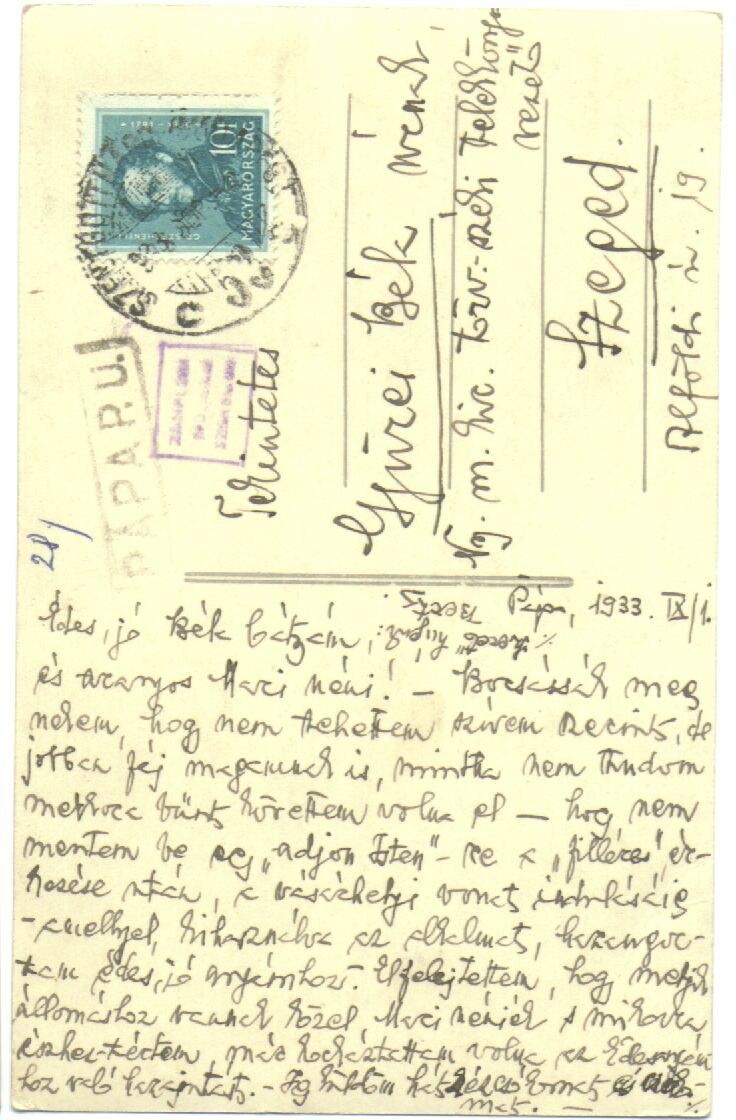 MAGYARORSZÁG
10f
PÁPA P. U.
28/
Tekintetes
Gyürei Bék
Ng. m. kir. törv.-széki telekkönyv
vezető
Szeged.
Alföldi u. 19.
Pápa, 1933. IX/1.
Édes, jó Bék bátyám,
és aranyos Maci néni! – Bocsássák meg
nekem, hogy nem tehettem szívem szerint, de
jobban fáj magamnak is, mintha nem tudom
mekkora bűnt követtem volna el – hogy nem
mentem be egy „adjon Isten"-re a „filléres" ér-
kezése után, a vásárhelyi vonat indulásáig
– amellyel, kihasználva az alkalmat, hazaugrot-
tam édes, jó anyámhoz. Elfelejtettem, hogy melyik
állomáshoz vannak közel Maci néniék s mikorra
észhez-tértem, már kockáztattam volna az Édesanyám
hoz való hazajutást. – Így küldöm hát